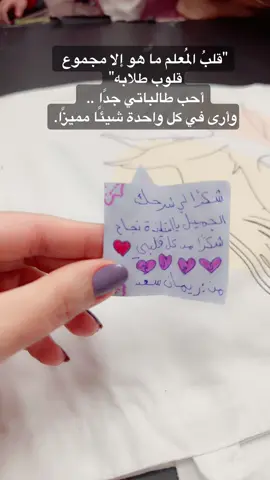 "قلبُ المُعلم ما هو إلا مجموع
قلوب طلابه"
أحب طالباتي جدًا ..
وأرى في كل واحدة شيئًا مميزًا.
شكرًا لي شرحك
الجميل يالنقدة نجاح
شكرًا من كل قلبي
من نريمان سعد